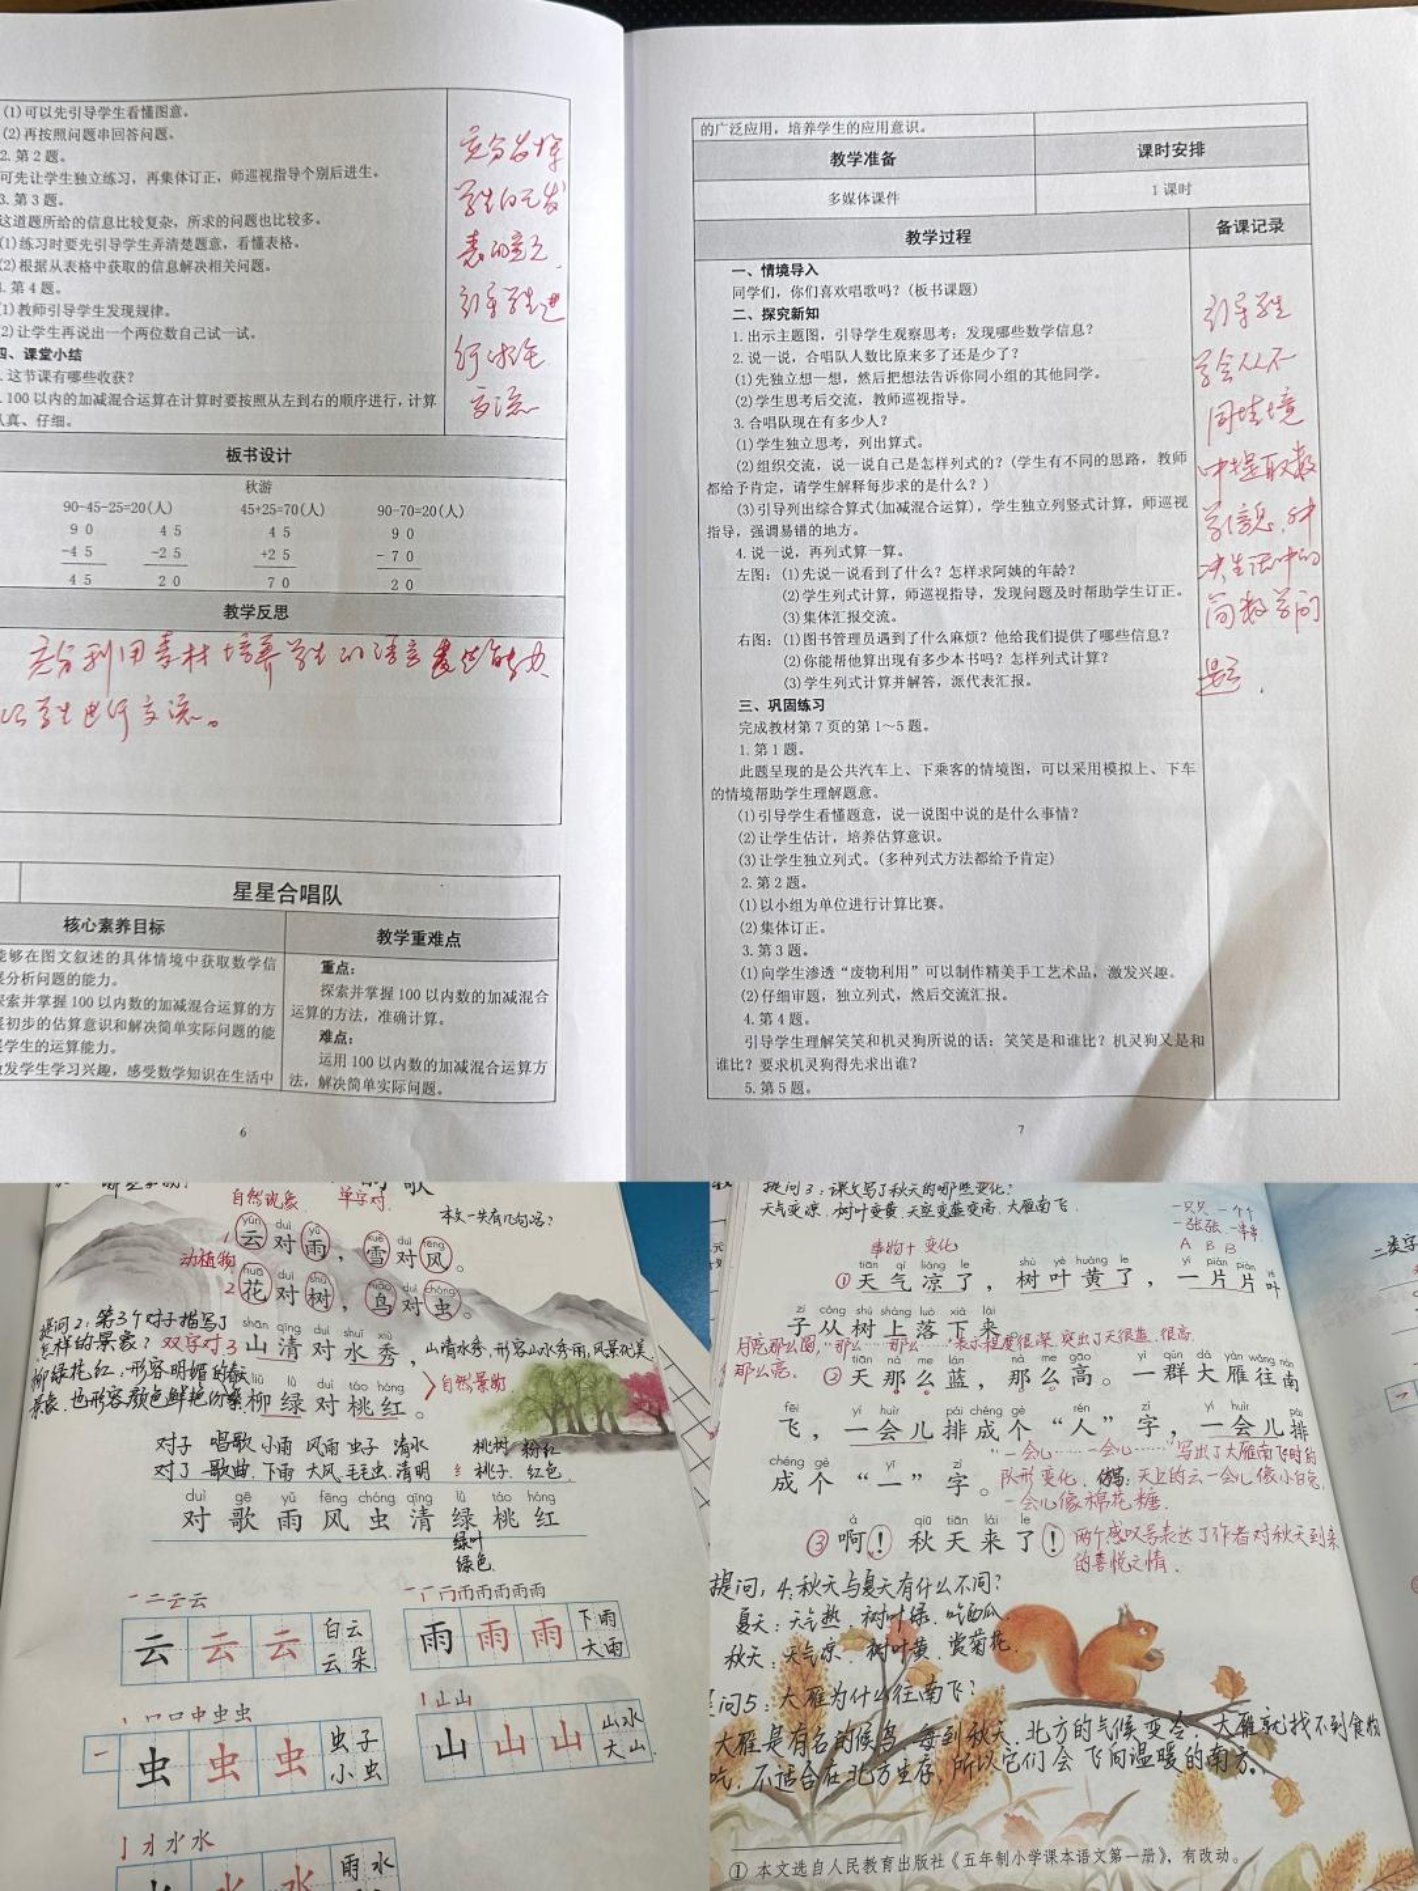 (1)可以先引导学生看懂图意。
(2)再按照问题串回答问题。
2.第2题。
可先让学生独立练习，再集体订正，师巡视指导个别后进生。
3.第3题。
这道题所给的信息比较复杂，所求的问题也比较多。
(1)练习时要先引导学生弄清楚题意，看懂表格。
(2)根据从表格中获取的信息解决相关问题。
第4题。
1)教师引导学生发现规律。
2)让学生再说出一个两位数自己试一试。
四、课堂小结
.这节课有哪些收获？
.100以内的加减混合运算在计算时要按照从左到右的顺序进行，计算
认真、仔细。
充分发挥
学生
引导学生进
行
交流
板书设计
秋游
90-45-25=20(人) 45+25=70(人) 90-70=20(人)
90 45 45 90
-45 -25 +25 -70
45 20 70 20
教学反思
充分利用素材培养学生的语言表达能力
学生进行交流。
星星合唱队
核心素养目标
能够在图文叙述的具体情境中获取数学信
分析问题的能力。
探索并掌握100以内数的加减混合运算的方
初步的估算意识和解决简单实际问题的能
学生的运算能力。
发学生学习兴趣，感受数学知识在生活中
教学重难点
重点：
探索并掌握100以内数的加减混合
运算的方法，准确计算。
难点：
运用100以内数的加减混合运算方
法，解决简单实际问题。
6
的广泛应用，培养学生的应用意识。
教学准备 课时安排
多媒体课件 1课时
教学过程 备课记录
一、情境导入
同学们，你们喜欢唱歌吗？(板书课题)
二、探究新知
1.出示主题图，引导学生观察思考：发现哪些数学信息？
2.说一说，合唱队人数比原来多了还是少了？
(1)先独立想一想，然后把想法告诉你同小组的其他同学。
(2)学生思考后交流，教师巡视指导。
3.合唱队现在有多少人？
(1)学生独立思考，列出算式。
(2)组织交流，说一说自己是怎样列式的？(学生有不同的思路，教师
都给予肯定，请学生解释每步求的是什么？)
(3)引导列出综合算式(加减混合运算)，学生独立列竖式计算，师巡视
指导，强调易错的地方。
4.说一说，再列式算一算。
左图：(1)先说一说看到了什么？怎样求阿姨的年龄？
(2)学生列式计算，师巡视指导，发现问题及时帮助学生订正。
(3)集体汇报交流。
右图：(1)图书管理员遇到了什么麻烦？他给我们提供了哪些信息？
(2)你能帮他算出现有多少本书吗？怎样列式计算？
(3)学生列式计算并解答，派代表汇报。
三、巩固练习
完成教材第7页的第1～5题。
1.第1题。
此题呈现的是公共汽车上、下乘客的情境图，可以采用模拟上、下车
的情境帮助学生理解题意。
(1)引导学生看懂题意，说一说图中说的是什么事情？
(2)让学生估计，培养估算意识。
(3)让学生独立列式。(多种列式方法都给予肯定)
2.第2题。
(1)以小组为单位进行计算比赛。
(2)集体订正。
3.第3题。
(1)向学生渗透“废物利用”可以制作精美手工艺术品，激发兴趣。
(2)仔细审题，独立列式，然后交流汇报。
4.第4题。
引导学生理解笑笑和机灵狗所说的话：笑笑是和谁比？机灵狗又是和
谁比？要求机灵狗得先求出谁？
5.第5题。
引导学生
学会从不
同情境
中提取数
学信息，解
决生活中的
简数学问
题。
7
自然现象 单字对 歌
本文一共有几句话？
yún duì yǔ xuě duì fēng
1 云对雨，雪对风。
动植物
huā duì shù niǎo duì chóng
2 花对树，鸟对虫。
提问2：第3个对子描写了
怎样的景象？双字对
shān qīng duì shuǐ xiù
3 山清对水秀，
山清水秀，形容山水秀丽，风景优美。
柳绿花红：形容明媚的春天
景象.也形容颜色鲜艳
liǔ lǜ duì táo hóng
柳绿对桃红。
自然景物
对子 唱歌 小雨 风雨 虫子 清水 桃树 粉红
对了 歌曲 下雨 大风 毛毛虫 清明 桃子 红色
duì gē yǔ fēng chóng qīng lǜ táo hóng
对歌雨风虫清绿桃红
绿叶
绿色
云 云 云 白云 云朵
雨 雨 雨 下雨 大雨
虫 虫 虫 虫子 小虫
山 山 山 山水 大山
水 水 水 雨水
提问3：课文写了秋天的哪些变化？
天气变凉、树叶变黄、天空变蓝变高、大雁南飞。
一只只 一个个
一张张 一串串
A B B
二类字
事物+变化
tiān qì liáng le shù yè huáng le yí piàn piàn yè
①天气凉了，树叶黄了，一片片叶
zi cóng shù shàng luò xià lái
子从树上落下来。
月亮那么圆，“那么……那么……”表示程度很深，突出了天很蓝、很高。
那么亮。
tiān nà me lán nà me gāo yì qún dà yàn wǎng nán
②天那么蓝，那么高。一群大雁往南
fēi yí huìr pái chéng gè rén zì yí huìr pái
飞，一会儿排成个“人”字，一会儿排
“一会儿……一会儿……”写出了大雁南飞时的
chéng gè yī zì
成个“一”字。
队形变化.仿写：天上的云一会儿像小白兔，
一会儿像棉花糖.
à qiū tiān lái le
③啊！秋天来了！
两个感叹号表达了作者对秋天到来
的喜悦之情.
提问，4：秋天与夏天有什么不同？
夏天：天气热、树叶绿、吃西瓜
秋天：天气凉、树叶黄、赏菊花.
问5：大雁为什么往南飞？
大雁是有名的候鸟，每到秋天，北方的气候变冷，大雁就找不到食物
吃，不适合在北方生存，所以它们会飞向温暖的南方。
①本文选自人民教育出版社《五年制小学课本语文第一册》，有改动。